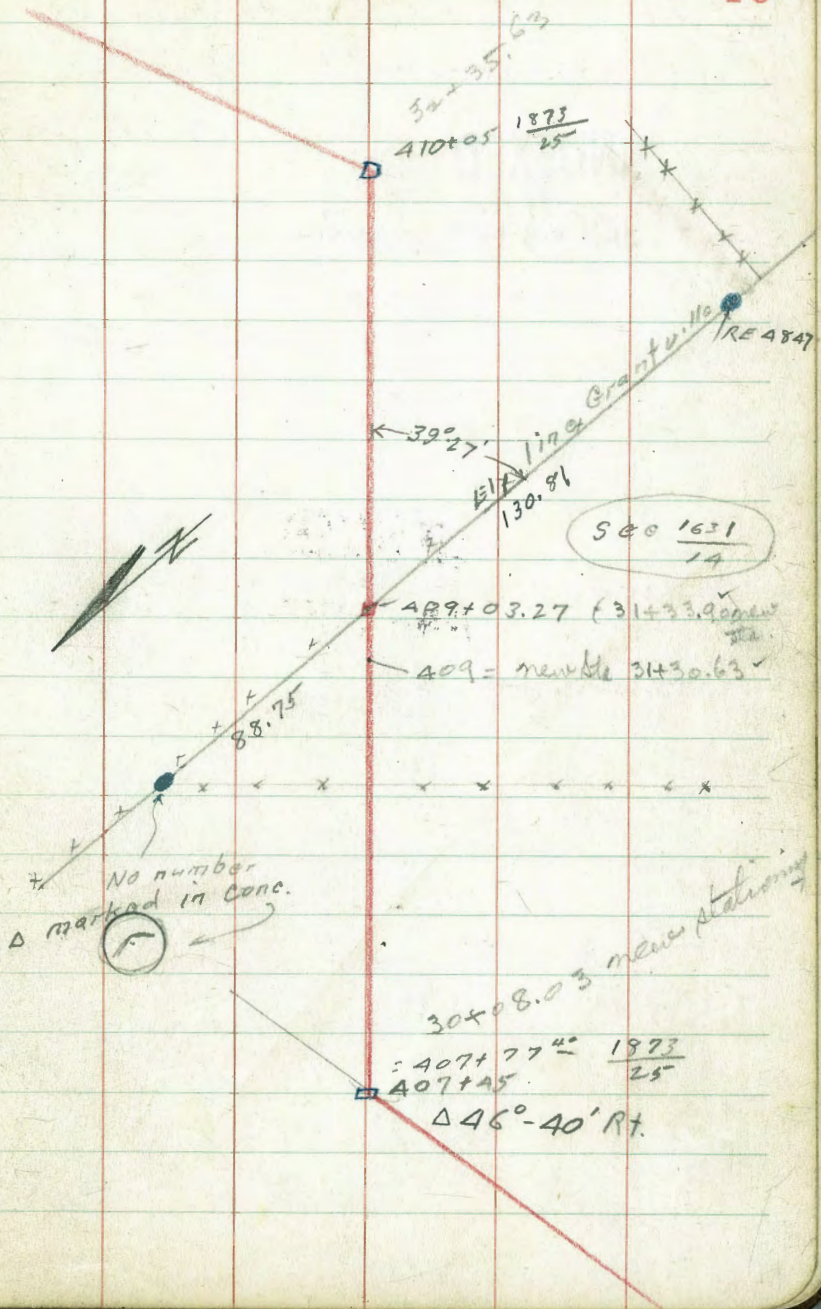 32+35.63
410+05 1873/25
RE 4847
39°27'
Ely line Grantville
130.81
See 1631/14
409+03.27 (31+33.90 new sta.
409 = new Sta 31+30.63 ✓
88.75
No number
Δ marked in Conc.
30+08.03 new stationing
= 407+77.40 1873/25
407+45
Δ 46°-40' Rt.